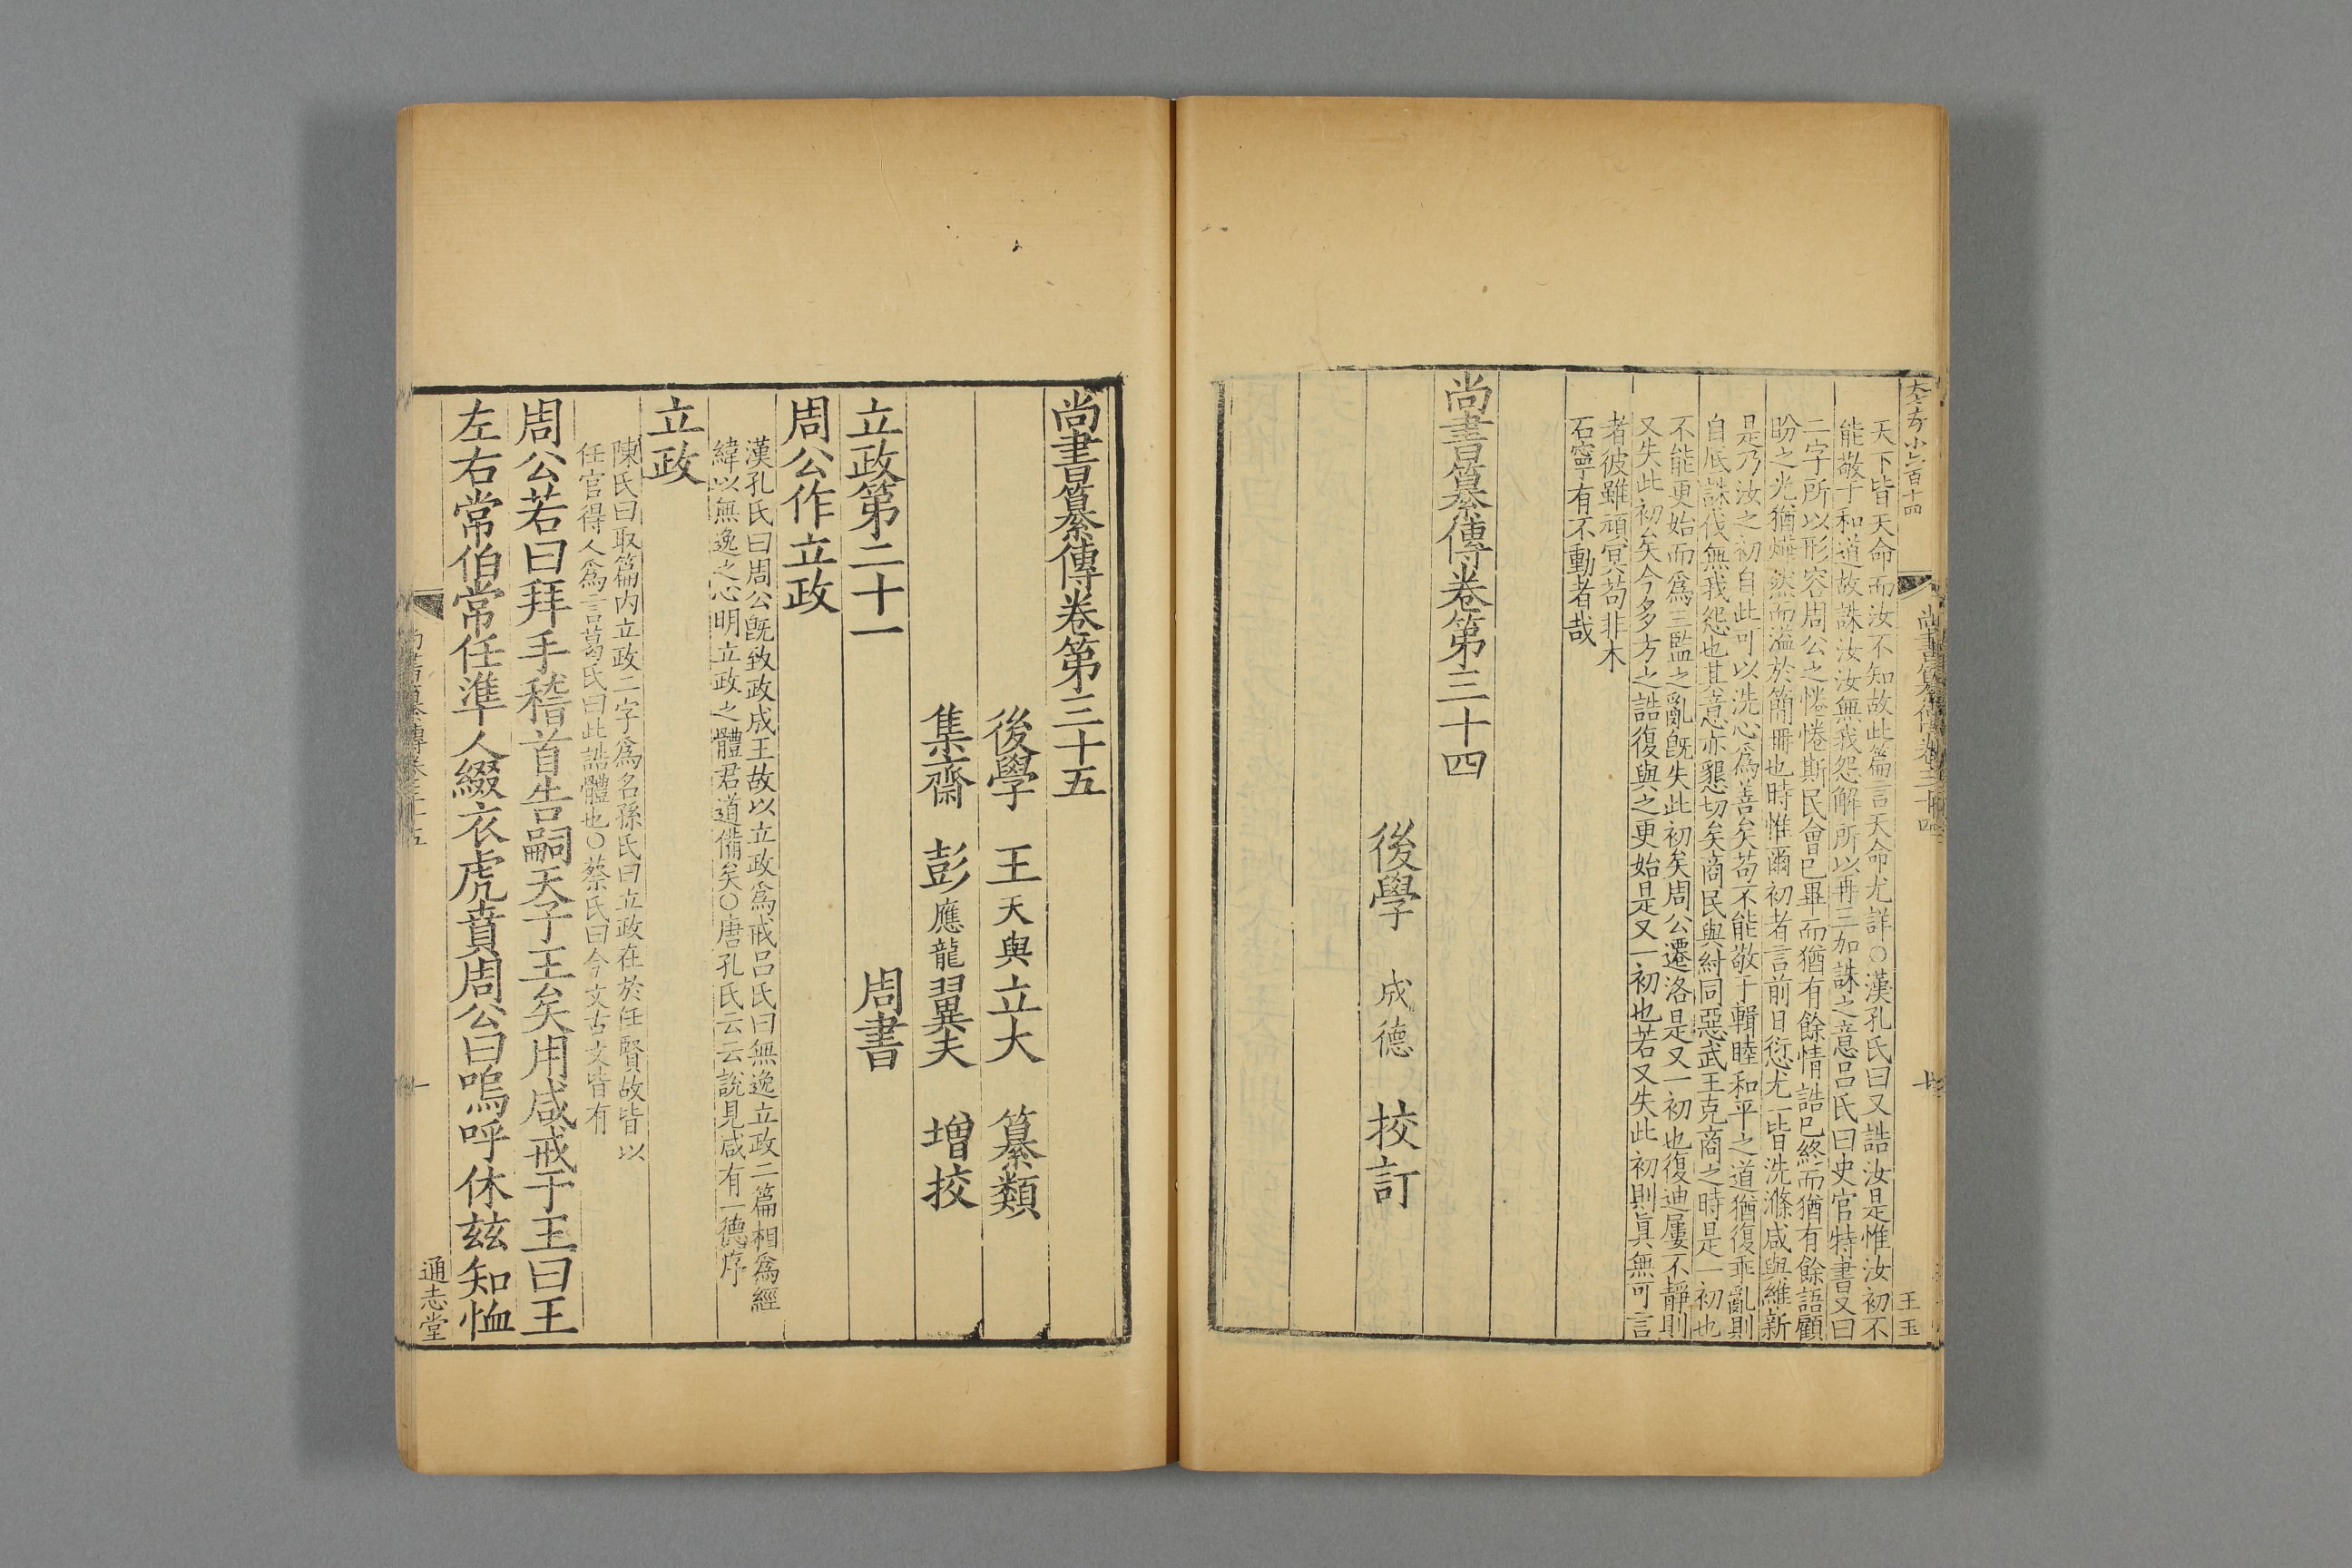 天下皆天命而汝不知故此篇言天命尤詳○漢孔氏曰又誥汝是惟汝初不
能敬于和道故誅汝汝無我怨解所以再三加誅之意呂氏曰史官特書又曰
二字所以形容周公之惓惓斯民會已畢而猶有餘情誥已終而猶有餘語顧
盼之光猶燁然而溢於簡冊也時惟爾初者言前日愆尤一皆洗滌咸與維新
是乃汝之初自此可以洗心為善矣苟不能敬于輯睦和平之道猶復乖亂則
自厎誅伐無我怨也其意亦懇切矣商民與紂同惡武王克商之時是一初也
不能更始而爲三監之亂旣失此初矣周公遷洛是又一初也復迪屢不靜則
又失此初矣今多方之誥復與之更始是又一初也若又失此初則眞無可言
者彼雖頑冥苟非木
石寧有不動者哉
尚書纂傳卷第三十四
後學 成德 挍訂
王玉
尚書纂傳卷第三十五
後學 王天與立大 纂類
集齋 彭應龍翼夫 增挍
立政第二十一 周書
周公作立政
漢孔氏曰周公旣致政成王故以立政爲戒呂氏曰無逸立政二篇相爲經
緯以無逸之心明立政之體君道備矣○唐孔氏云云說見咸有一德序
立政
陳氏曰取篇内立政二字爲名孫氏曰立政在於任賢故皆以
任官得人爲言葛氏曰此誥體也○蔡氏曰今文古文皆有
周公若曰拜手稽首告嗣天子王矣用咸戒于王曰王
左右常伯常任準人綴衣虎賁周公曰嗚呼休茲知恤
通志堂